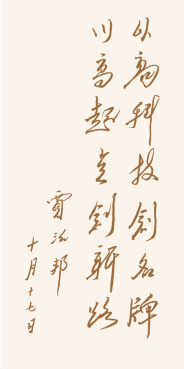 以高科技创名牌
以高起点创新路
贾沛邦
十月十七日